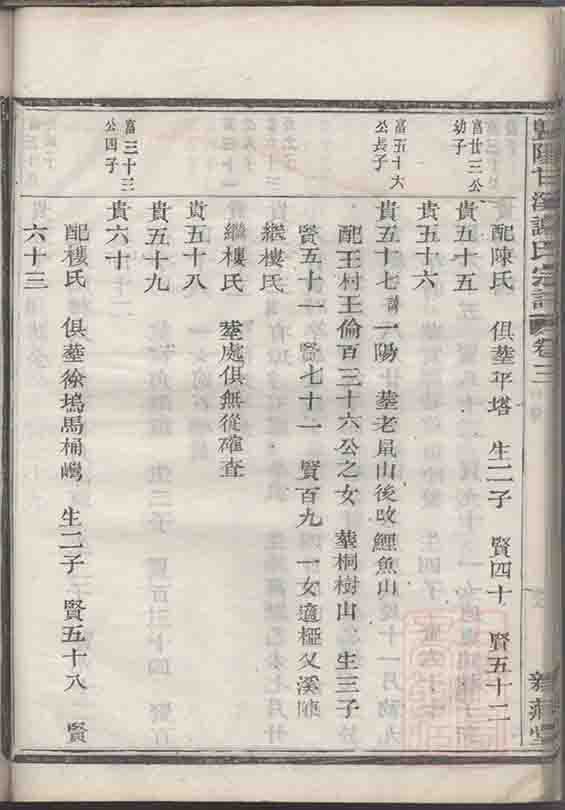 暨陽甘溪譚氏宗譜 卷三
配陳氏 俱葬平塔 生二子 賢四十 賢五十二
富廿三公幼子
貴五十五
貴五十六
富五十六公長子
貴五十七 諱一陽 葬老鼠山後改鯉魚山
配王村王倫百三十六公之女 葬桐樹山 生三子
賢五十一 賢七十一 賢百九 一女適極义溪陳
繼樓氏
繼樓氏 葬處俱無從確查
貴五十八
貴五十九
富三十三公四子
貴六十
配樓氏 俱葬徐塢馬桶嶴 生二子 賢五十八 賢
六十三